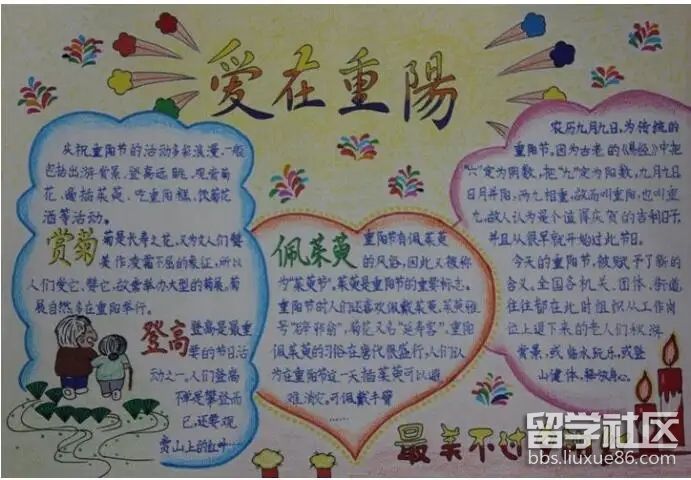 爱在重陽
庆祝重阳节的活动多彩浪漫,一般
包括出游赏景、登高远眺、观赏菊
花、遍插茱萸、吃重阳糕、饮菊花
酒等活动。
赏菊 菊是长寿之花,又为文人们赞
美作凌霜不屈的象征,所以
人们爱它、赞它,故常举办大型的菊展。菊
展自然多在重阳举行。
登高 登高是最重
要的节日活
动之一。人们登高
不单是攀登而
已,还要观
赏山上的红叶…
佩茱萸 重阳节有佩茱萸
的风俗,因此又被称
为"茱萸节"。茱萸是重阳节的重要标志。
重阳节时人们还喜欢佩戴茱萸,茱萸雅
号"辟邪翁",菊花又名"延寿客"。重阳
佩茱萸的习俗在唐代很盛行,人们认
为在重阳节这一天插茱萸可以避
难消灾,可佩戴手臂
农历九月九日,为传统的
重阳节。因为古老的《易经》中把
"六"定为阴数,把"九"定为阳数,九月九日
日月并阳,两九相重,故而叫重阳,也叫重
九,故人认为是个值得庆贺的吉利日子,
并且从很早就开始过此节日。
今天的重阳节,被赋予了新的
含义,全国各机关、团体、街道,
往往都在此时组织从工作岗
位上退下来的老人们秋游
赏景,或临水玩乐,或登
山健体,释放身心。
最美不过
留学社区
bbs.liuxue86.com